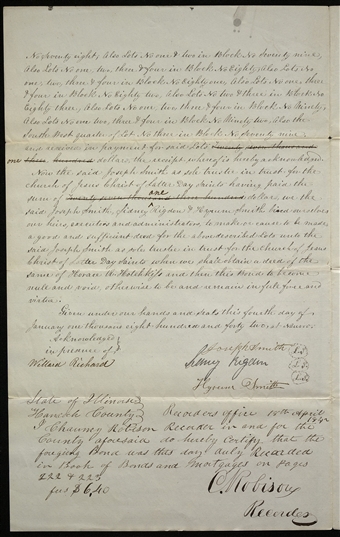 No Seventy eight, Also Lots No one & two in Block No Seventy nine,
Also Lots No one, two, three & four in Block No Eighty, Also Lots No
one, two, three & four in Block No Eighty one, Also Lots No one, three
& four in Block No Eighty two, Also Lots No two & three in Block No
Eighty three, Also Lots No one two three & four in Block No Ninety,
Also Lots No one two, three & four in Block No Ninety two, Also the
South West quarter of Lot No three in Block No Seventy nine
and received in payment for said Lots Twenty seven thousand
one three hundred dollars, the receipt whereof is hereby acknowledged.
Now the said Joseph Smith as sole trustee in trust for the
Church of Jesus Christ of Latter Day Saints having paid the
sum of Twenty seven thousand one three hundred dollars, we the
said Joseph Smith, Sidney Rigdon & Hyrum Smith bind ourselves
our heirs, executors and administrators to make or cause to be made
a good and sufficient deed for the above described Lots unto the
said Joseph Smith as sole trustee in trust for the Church of Jesus
Christ of Latter Day Saints when we shall obtain a deed of the
same of Horace R. Hotchkiss and then this Bond to become
null and void, otherwise to be and remain in full force and
virtue.
Given under our hands and seals this fourth day of
January one thousand eight hundred and forty two
Acknowledged
in presence of
Willard Richard
Joseph Smith L.S.
Sidney Rigdon L.S.
Hyrum Smith L.S.
State of Illinois
Hancock County
Recorders office 18th April 1842
I Chauncy Robison Recorder in and for the
County aforesaid do hereby certify that the
foregoing Bond was this day duly Recorded
in Book of Bonds and Mortgages on Pages
222 & 223
fees $6,40
C. Robison
Recorder